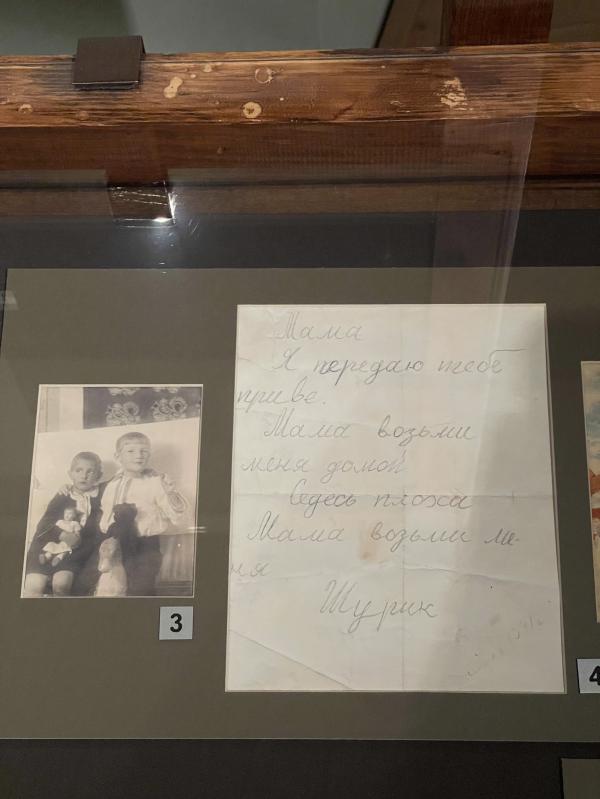 Мама
Я передаю тебе
приве.
Мама возьми
меня домой
Сдесь плоха
Мама возьми ме-
ня
Шурик
3
4